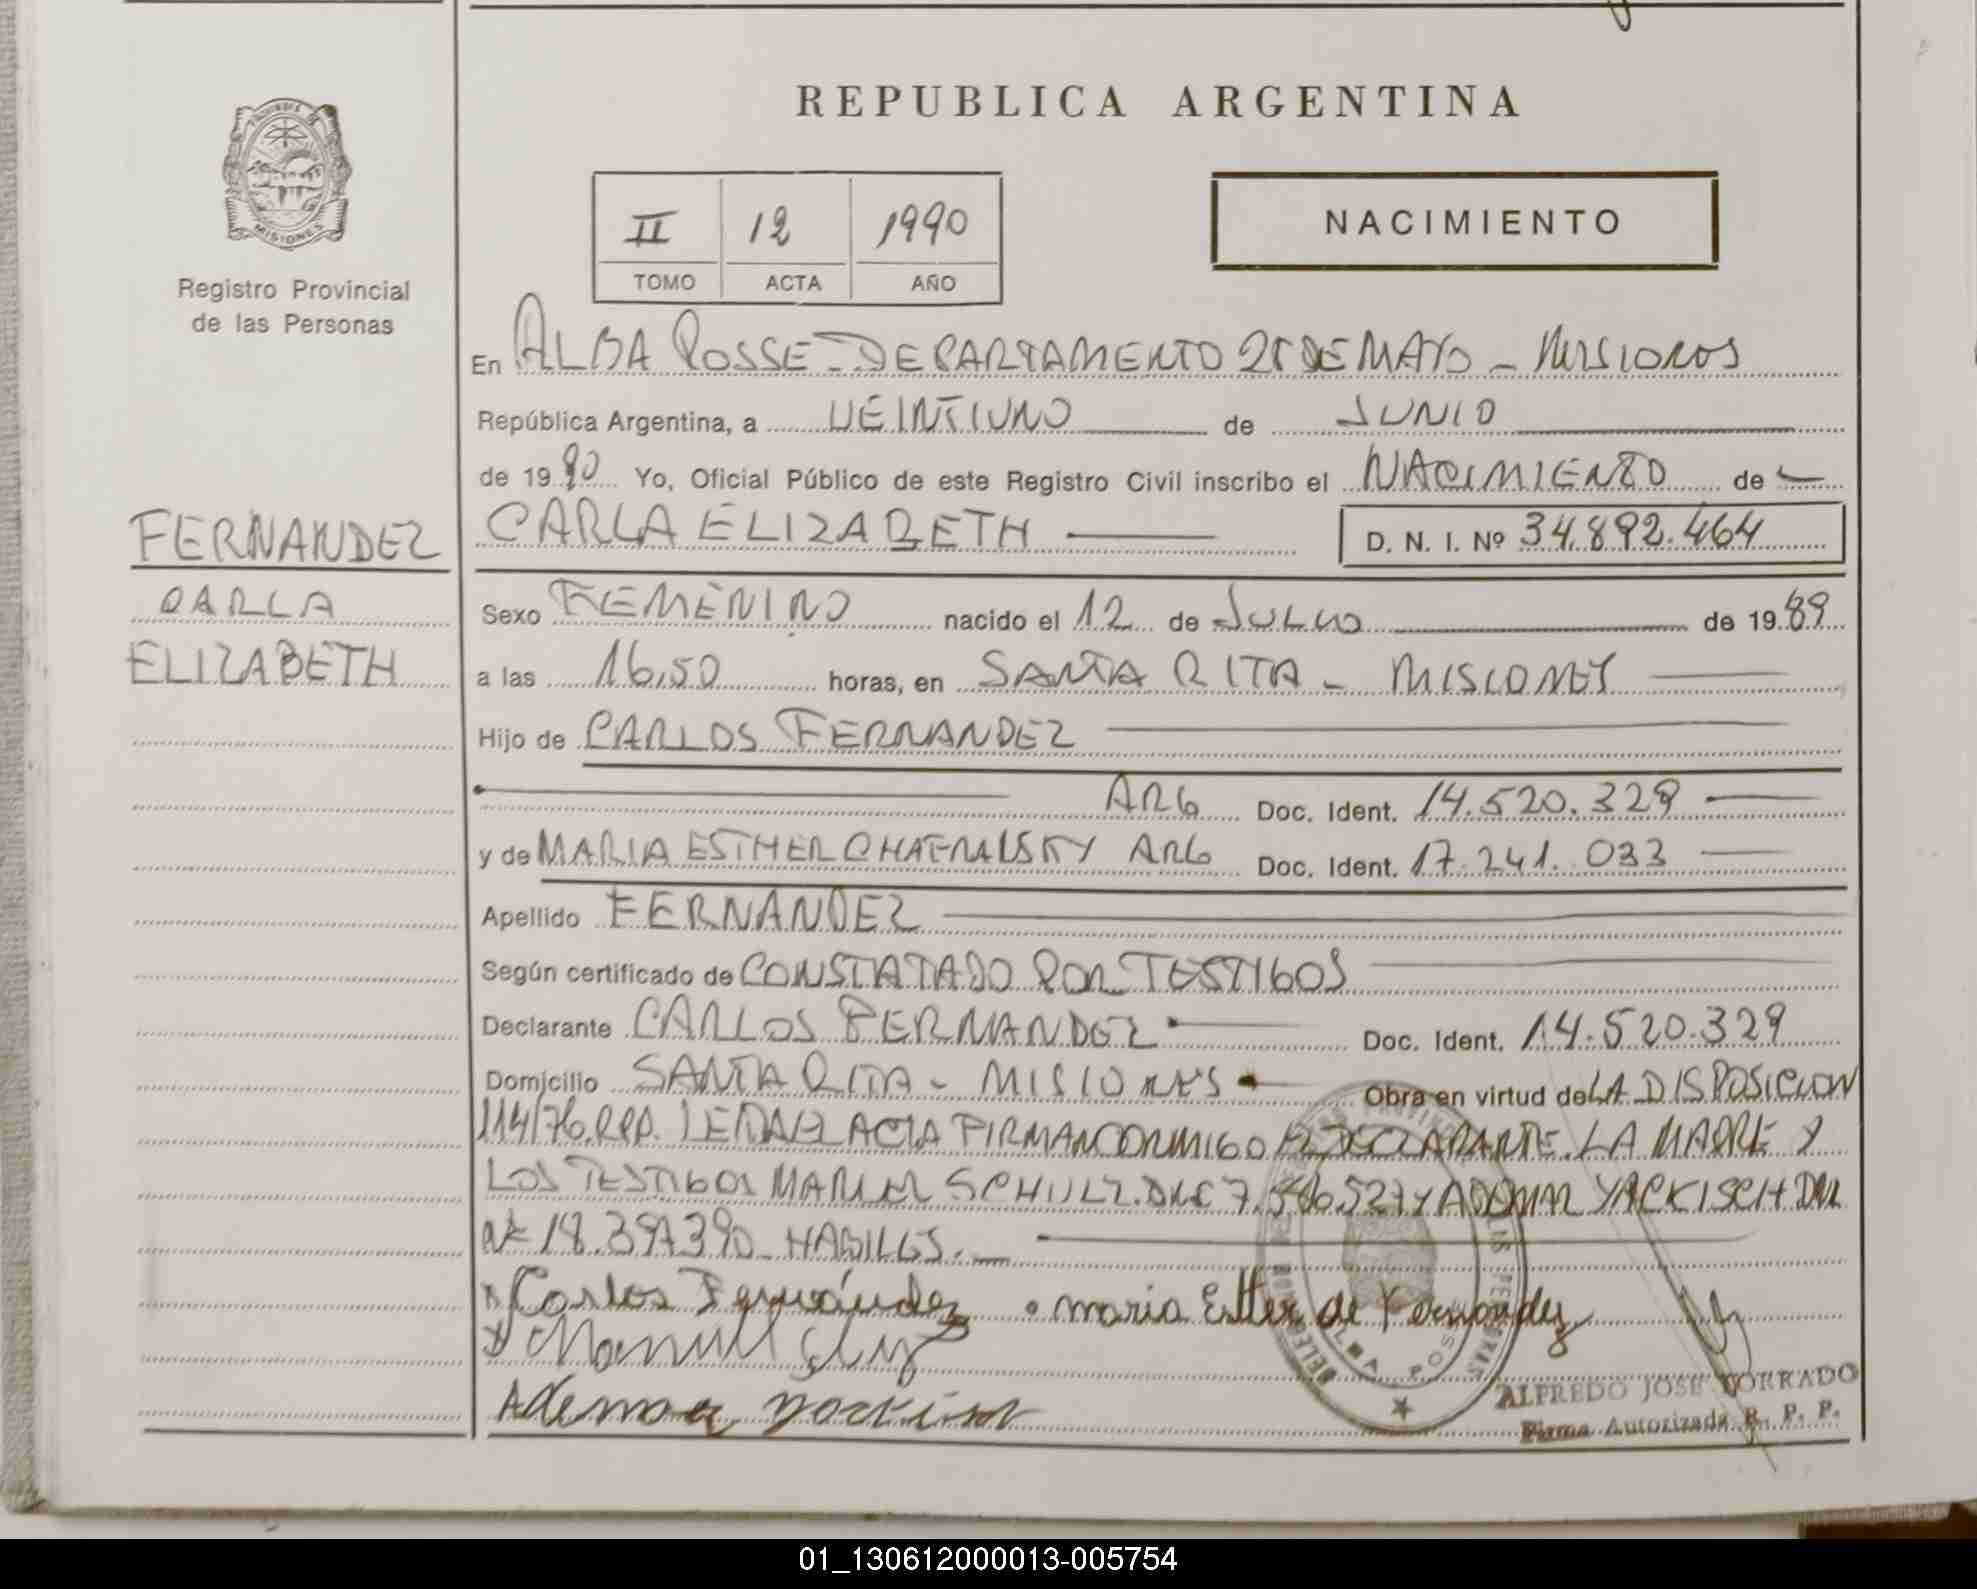 REPUBLICA ARGENTINA
PROVINCIA DE
MISIONES
Registro Provincial
de las Personas
II 12 1990
TOMO ACTA AÑO
NACIMIENTO
En ALBA POSSE - DEPARTAMENTO 25 DE MAYO - MISIONES
República Argentina, a VEINTIUNO de JUNIO
de 1990 Yo, Oficial Público de este Registro Civil inscribo el NACIMIENTO de
FERNANDEZ
CARLA
ELIZABETH
CARLA ELIZABETH D. N. I. Nº 34.892.464
Sexo FEMENINO nacido el 12 de JULIO de 1989
a las 16,50 horas, en SANTA RITA - MISIONES
Hijo de CARLOS FERNANDEZ
ARG Doc. Ident. 14.520.329
y de MARIA ESTHER ARG Doc. Ident. 17.241.033
Apellido FERNANDEZ
Según certificado de CONSTATADO POR TESTIGOS
Declarante CARLOS FERNANDEZ Doc. Ident. 14.520.329
Domicilio SANTA RITA - MISIONES Obra en virtud de LA DISPOSICION
114/76.RPP. ACTA FIRMAN CONMIGO EL DECLARANTE. LA MADRE Y
LOS TESTIGOS SCHULZ. Y YACKISCH. DNI
Nº 18.397.390 - HABILES. -
x Carlos Fernández maria Ester de Fernandez
ALBA POSSE
ALFREDO JOSE TORRADO
Firma Autorizada R. P. P.
01_130612000013-005754